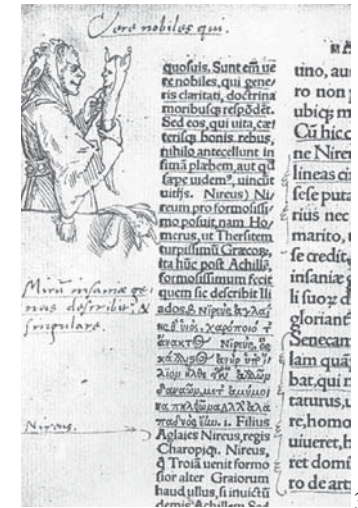 Vere nobiles qui.
quosuis. Sunt em̃ ue
re nobiles, qui gene/
ris claritati, doctrina
moribusq; respõdẽt.
Sed eos, qui uita, cæ/
terisq; bonis rebus,
nihilo antecellunt in
fimã plæbem, aut qđ
sæpe uidemᵒ, uincũt
uitijs. Nireus) Ni
reum pro formosissi/
mo posuit, nam Ho/
merus, ut Thersitem
turpissimũ Græcoꝝ,
ita hũc post Achillẽ,
formosissimum fecit
quem sic describit Ili
ados β
Filius
Aglaies Nireus, regis
Charopiq;. Nireus,
q̃ Troiã uenit formo
sior alter Graiorum
haud ullus, si inuictũ
demis Achillem Sed
Mirũ insaniæ ge/
nus describit, &
singulare.
Nireus.
tino, au
ro non
ubiq; m
Cũ hic c
ne Nire
lineas ci
sese puta
rius nec
marito, u
se credit,
insaniæ g
li suoꝝ d
gloriant
Senecam
lam quã
bat, qui n
raturus, u
re, homo
uiueret, h
ret domi
ro de art